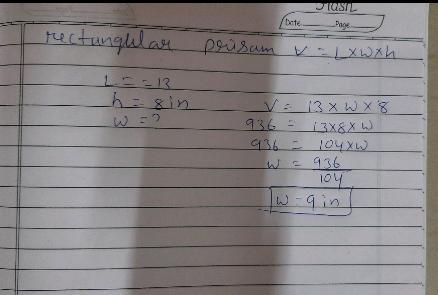 Date Page
rectangular prisam V = L×w×h
L = = 13
h = 8 in
w = ?
V = 13 × w × 8
936 = 13×8×w
936 = 104×w
w = 936
104
w = 9 in